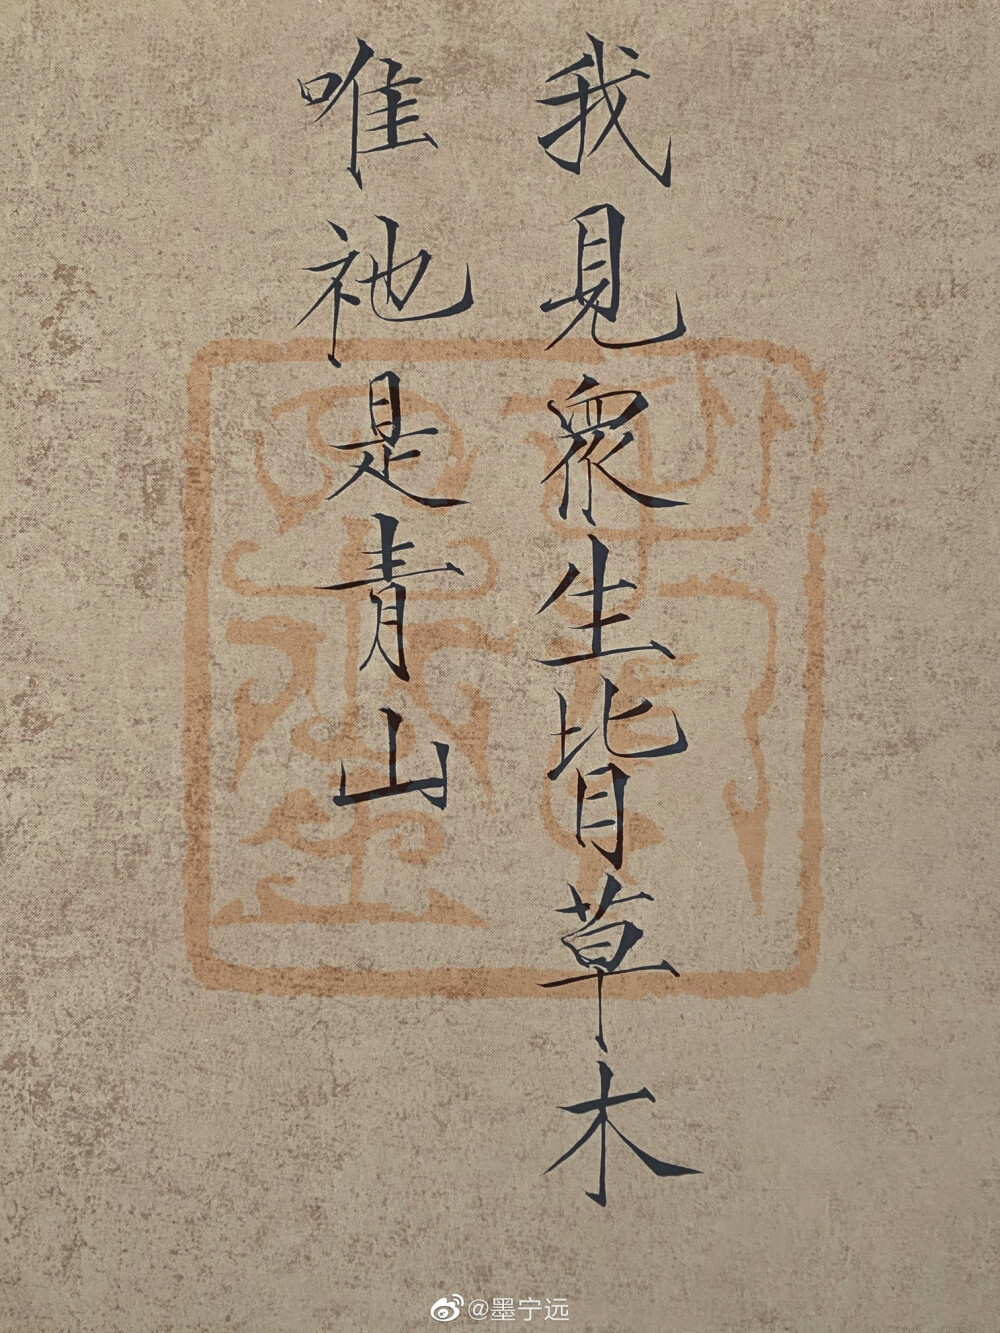 我見眾生皆草木
唯祂是青山
@墨宁远